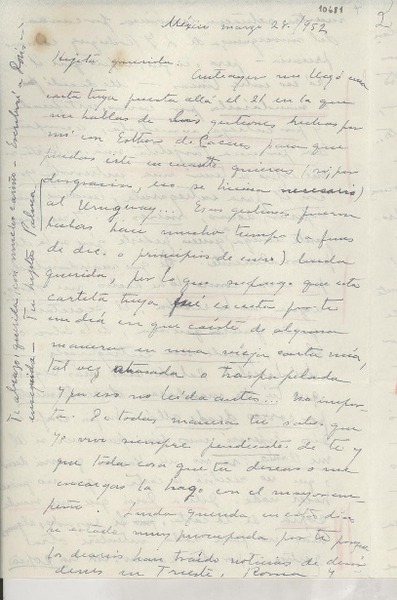 10681
2
México marzo 28/952
Hijita querida:
Anteayer me llegó una
carta tuya puesta allá el 21 en la que
me hablas de las gestiones hechas por
mí con Esther de Cáceres para que
puedas irte en cuanto quieras (si, por
desgracia, eso se hiciera necesario)
al Uruguay... Esas gestiones fueron
hechas hace mucho tiempo (a fines
de dic. o principios de enero) linda
querida, por lo que supongo que esta
cartita tuya fué escrita por ti
un día en que caíste de alguna
manera en una vieja carta mía,
tal vez atrasada o traspapelada
y por eso no leída antes... No impor-
ta. De todas maneras tú sabes que
yo vivo siempre pendiente de ti y
que toda cosa que tú deseas o me
encargas la hago con el mayor em-
peño. Linda querida, en estos días
he estado muy preocupada por ti porque
los diarios han traído noticias de desór-
denes en Trieste, Roma y
Te abrazo, querida, con mucho cariño - Escribiré a
enseguida - Tu hijita Palma